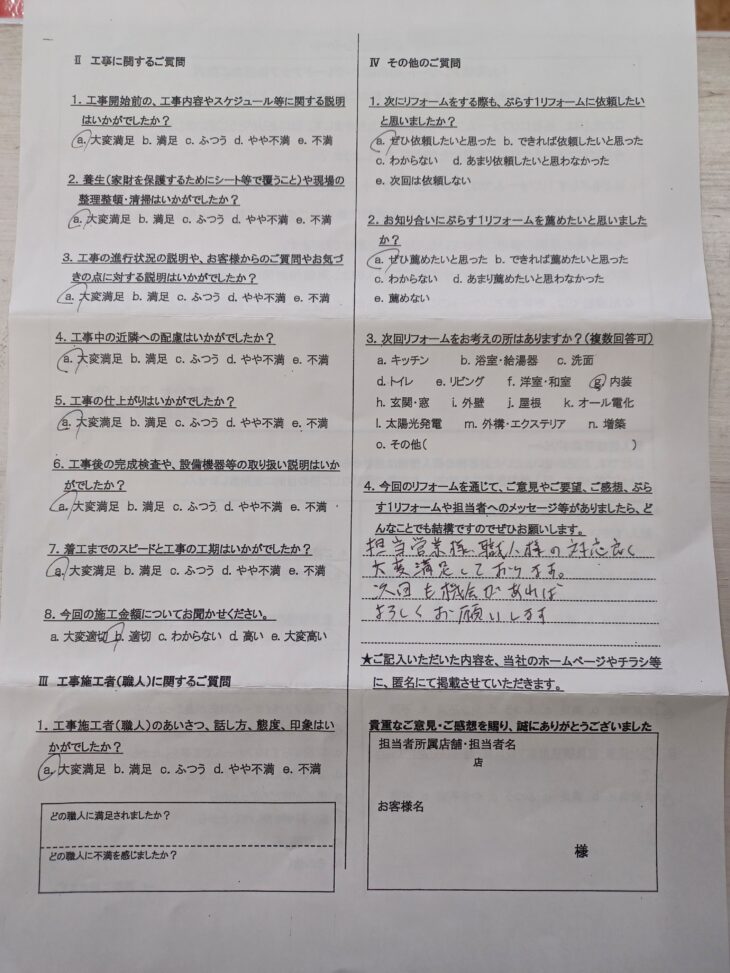 Ⅱ 工事に関するご質問
1. 工事開始前の、工事内容やスケジュール等に関する説明
はいかがでしたか？
a. 大変満足 b. 満足 c. ふつう d. やや不満 e. 不満
2. 養生(家財を保護するためにシート等で覆うこと)や現場の
整理整頓・清掃はいかがでしたか？
a. 大変満足 b. 満足 c. ふつう d. やや不満 e. 不満
3. 工事の進行状況の説明や、お客様からのご質問やお気づ
きの点に対する説明はいかがでしたか？
a. 大変満足 b. 満足 c. ふつう d. やや不満 e. 不満
4. 工事中の近隣への配慮はいかがでしたか？
a. 大変満足 b. 満足 c. ふつう d. やや不満 e. 不満
5. 工事の仕上がりはいかがでしたか？
a. 大変満足 b. 満足 c. ふつう d. やや不満 e. 不満
6. 工事後の完成検査や、設備機器等の取り扱い説明はいか
がでしたか？
a. 大変満足 b. 満足 c. ふつう d. やや不満 e. 不満
7. 着工までのスピードと工事の工期はいかがでしたか？
a. 大変満足 b. 満足 c. ふつう d. やや不満 e. 不満
8. 今回の施工金額についてお聞かせください。
a. 大変適切 b. 適切 c. わからない d. 高い e. 大変高い
Ⅲ 工事施工者(職人)に関するご質問
1. 工事施工者(職人)のあいさつ、話し方、態度、印象はい
かがでしたか？
a. 大変満足 b. 満足 c. ふつう d. やや不満 e. 不満
どの職人に満足されましたか？
どの職人に不満を感じましたか？
Ⅳ その他のご質問
1. 次にリフォームをする際も、ぷらす1リフォームに依頼したい
と思いましたか？
a. ぜひ依頼したいと思った b. できれば依頼したいと思った
c. わからない d. あまり依頼したいと思わなかった
e. 次回は依頼しない
2. お知り合いにぷらす1リフォームを薦めたいと思いました
か？
a. ぜひ薦めたいと思った b. できれば薦めたいと思った
c. わからない d. あまり薦めたいと思わなかった
e. 薦めない
3. 次回リフォームをお考えの所はありますか？(複数回答可)
a. キッチン b. 浴室・給湯器 c. 洗面
d. トイレ e. リビング f. 洋室・和室 g. 内装
h. 玄関・窓 i. 外壁 j. 屋根 k. オール電化
l. 太陽光発電 m. 外構・エクステリア n. 増築
o. その他( )
4. 今回のリフォームを通じて、ご意見やご要望、ご感想、ぷら
す1リフォームや担当者へのメッセージ等がありましたら、ど
んなことでも結構ですのでぜひお願いします。
担当営業様、職人様の対応良く
大変満足しております。
次回も機会があれば
よろしくお願いします
★ご記入いただいた内容を、当社のホームページやチラシ等
に、匿名にて掲載させていただきます。
貴重なご意見・ご感想を賜り、誠にありがとうございました
担当者所属店舗・担当者名
店
お客様名
様